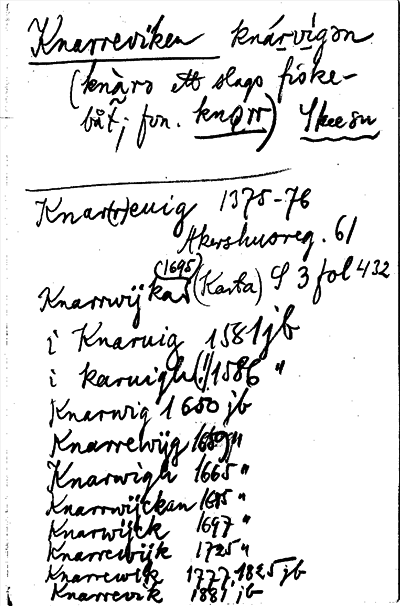 Knarreviken knárvìgən
(knàrə ett slags fiske-
båt; fvn. knǫrr) Skee sn
Knar(r)euig 1375-76
Akershusreg. 61
Knarrwijkas (1695) (Karta) S 3 fol 432
i Knaruig 1581 jb
i karuigh(!) 1586 "
Knarwig 1650 jb
Knarrewijg 1659 "
Knarwigh 1665 "
Knarrwijckan 1685 "
Knarwijck 1697 "
Knarrewijk 1725 "
Knarrewik 1777, 1825 jb
Knarrevik 1881 jb